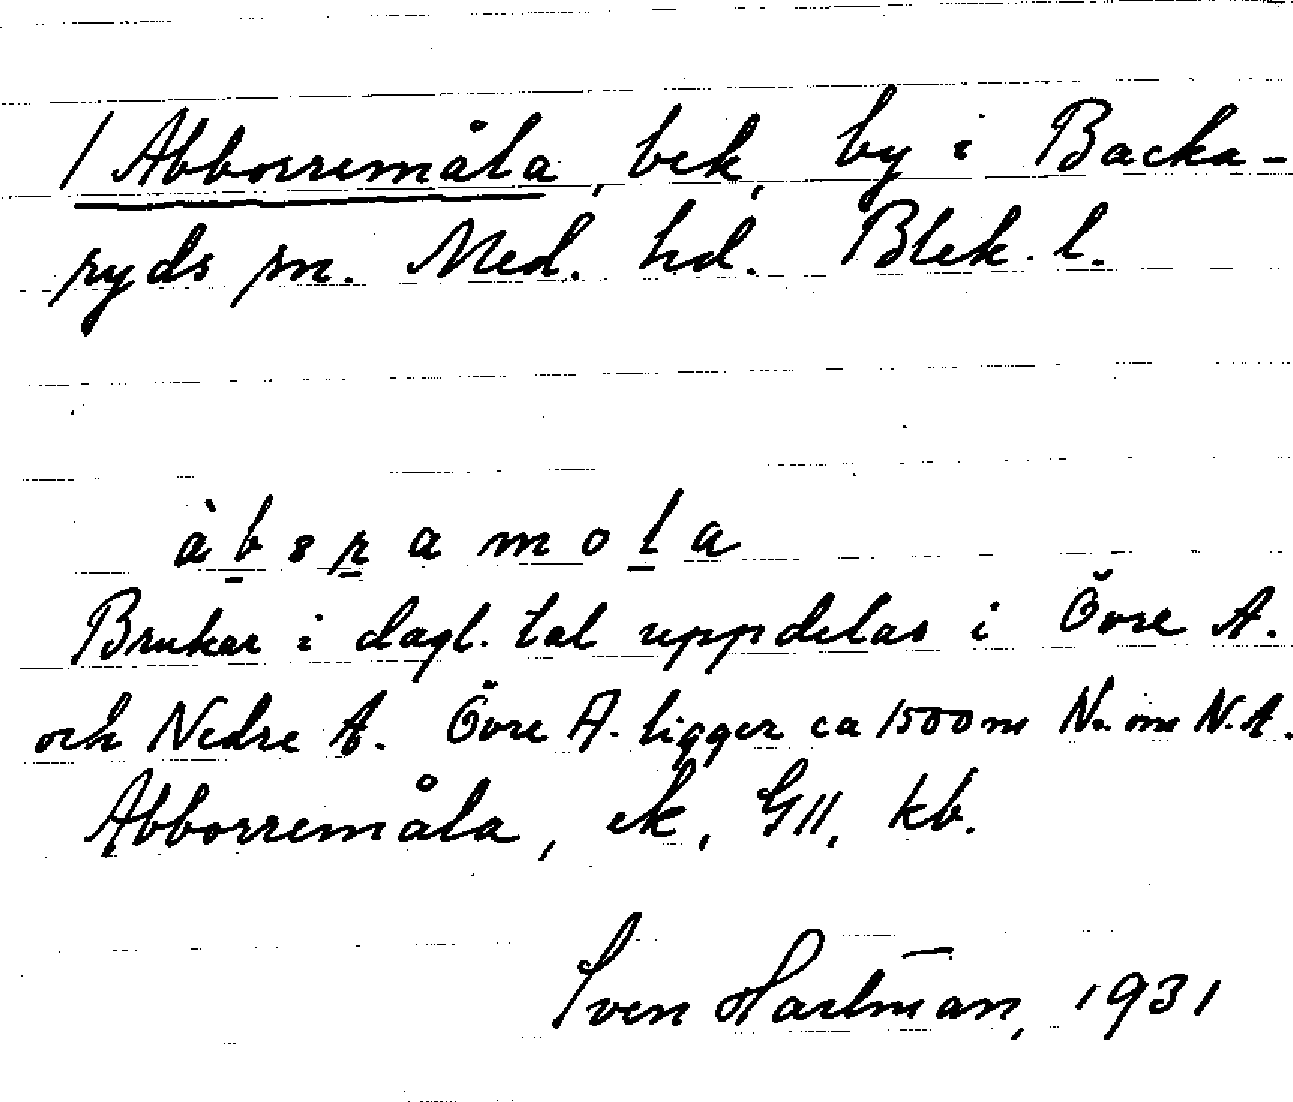 / Abborremåla, bek, by i Backa-
ryds sn. Med. hd. Blek. l.
àbsramola
Brukar i dagl. tal uppdelas i Övre A.
och Nedre A. Övre A. ligger ca 1500m N. om N.A.
Abborremåla, ek, GII, kb.
Sven Hartman, 1931